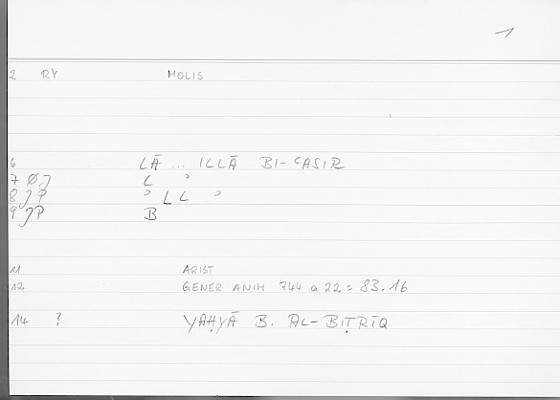 1
2 RY MOLIS
6 LĀ ... ILLĀ BI-ʿASIR
7 ØJ L ʾ
8 JP ʾ LL ʾ
9 JP B
11 ARIST
12 GENER ANIM 744 a 22 = 83.16
14 ? YAḤYĀ B. AL-BIṬRĪQ